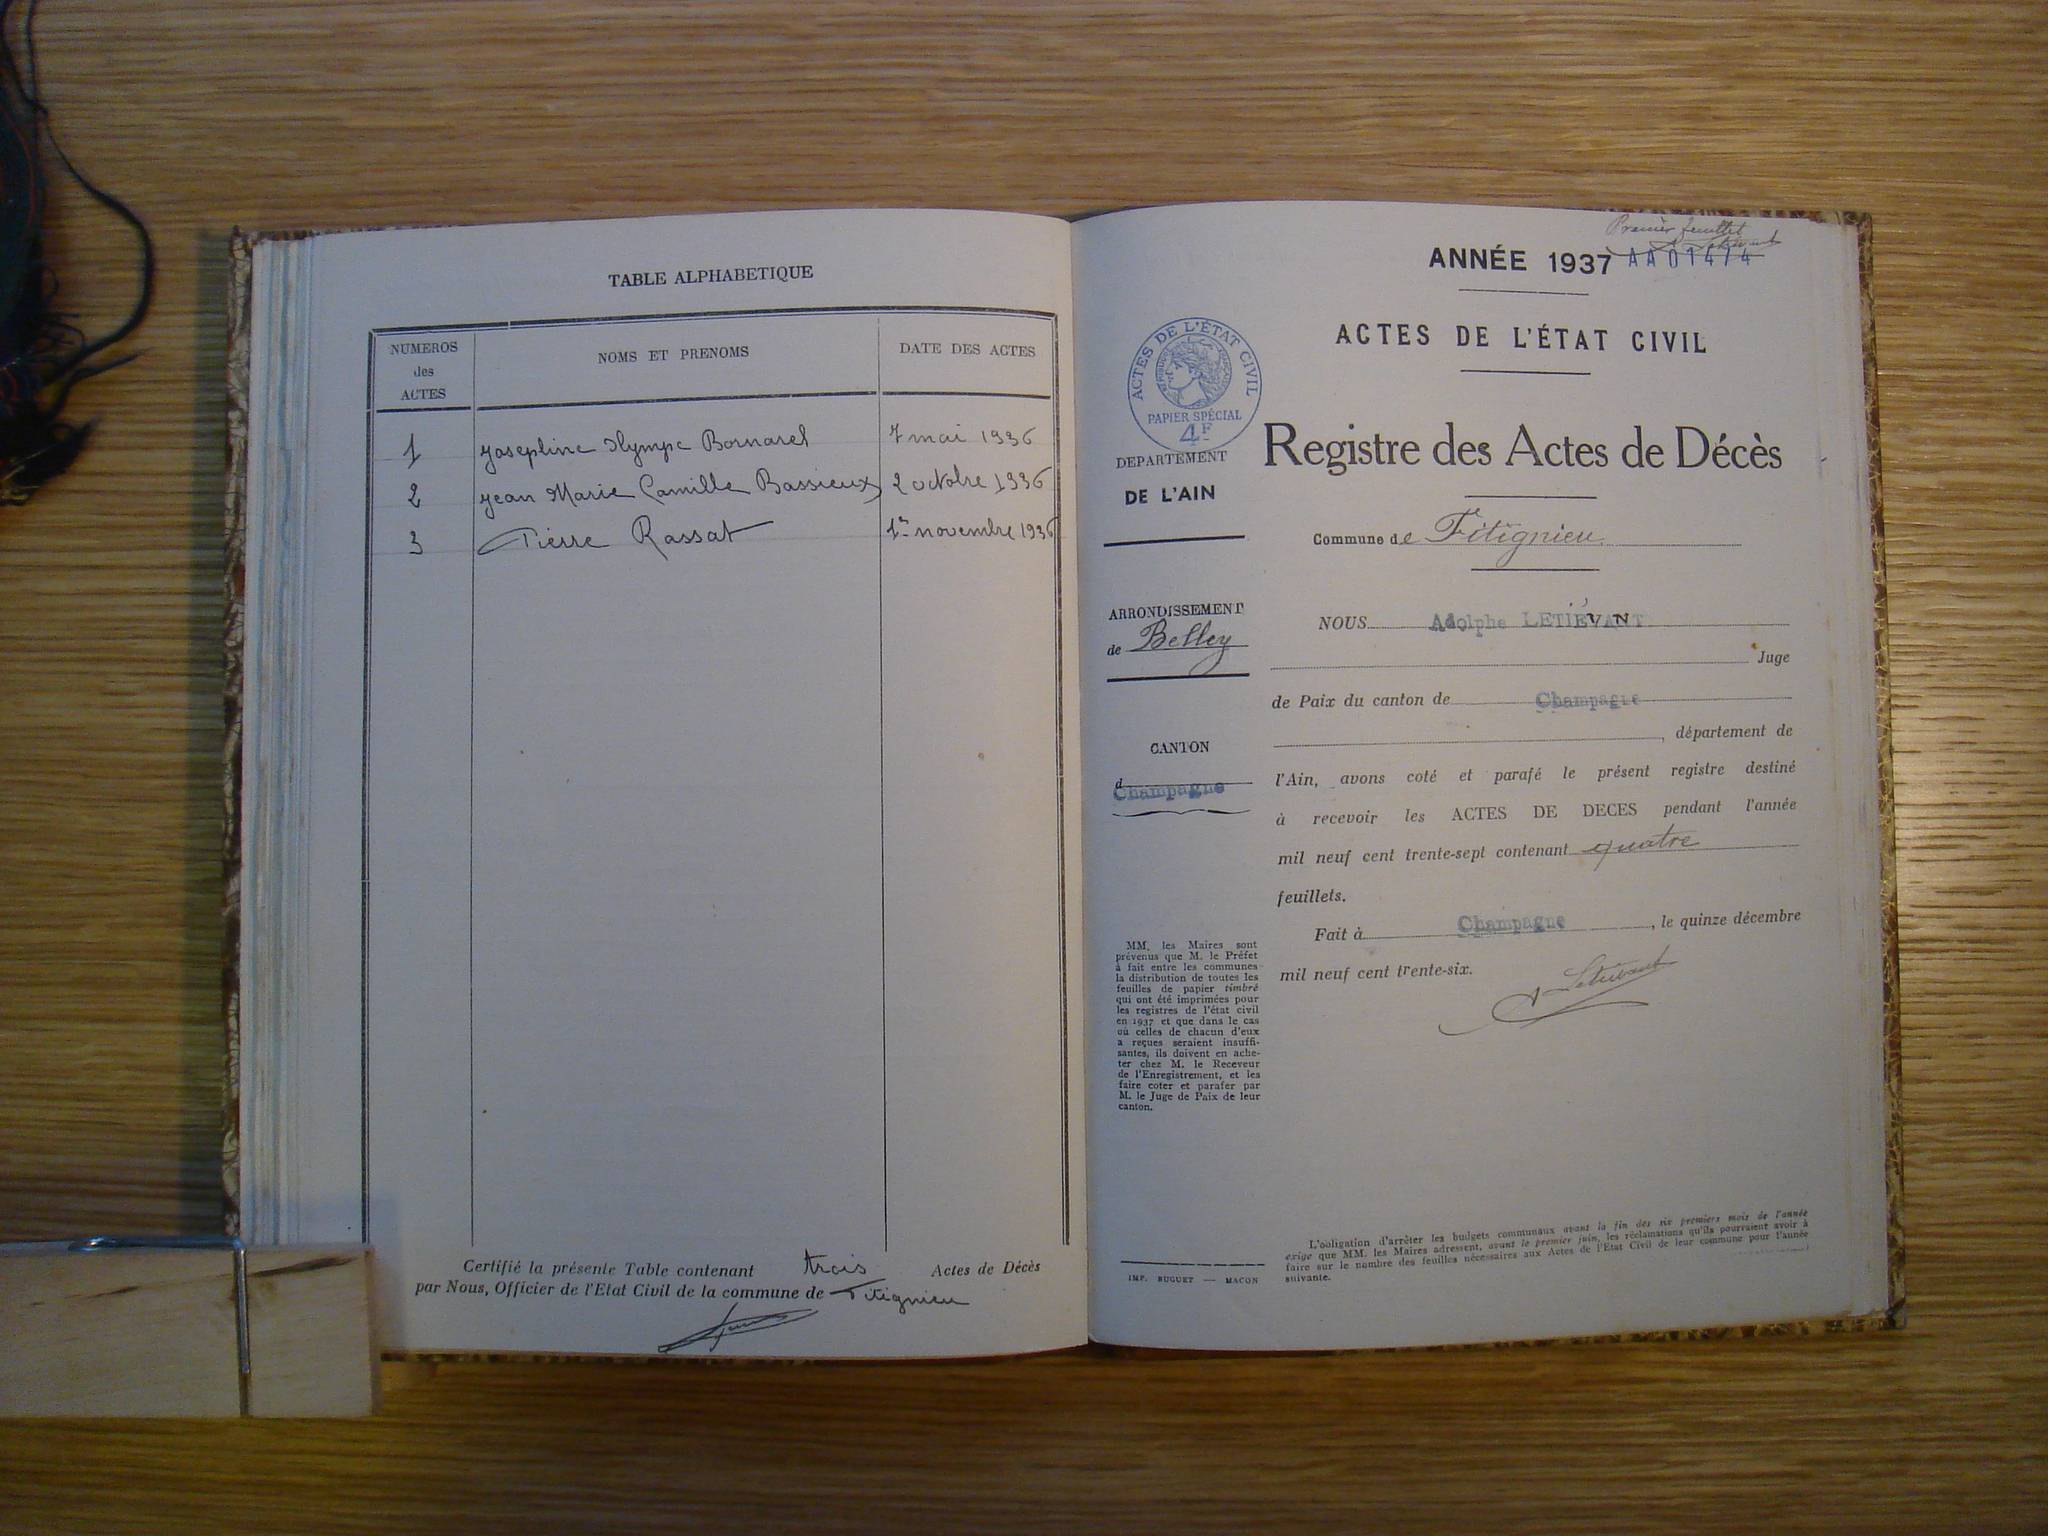 TABLE ALPHABETIQUE
NUMEROS
des
ACTES
NOMS ET PRENOMS
DATE DES ACTES
1 Joséphine Olympe Bornarel 7 mai 1936
2 Jean Marie Camille Bassieux 2 octobre 1936
3 Pierre Rassat 1er novembre 1936
Certifié la présente Table contenant trois Actes de Décès
par Nous, Officier de l'Etat Civil de la commune de Fitignieu
Premier feuillet
A Letiévant
ANNÉE 1937 AA01474
ACTES DE L'ÉTAT CIVIL
ACTES DE L'ÉTAT CIVIL
PAPIER SPÉCIAL
4F
DEPARTEMENT
DE L'AIN
ARRONDISSEMENT
de Belley
CANTON
d
Champagne
MM. les Maires sont
prévenus que M. le Préfet
à fait entre les communes
la distribution de toutes les
feuilles de papier timbré
qui ont été imprimées pour
les registres de l'état civil
en 1937 et que dans le cas
où celles de chacun d'eux
a reçues seraient insuffi-
santes, ils doivent en ache-
ter chez M. le Receveur
de l'Enregistrement, et les
faire coter et parafer par
M. le Juge de Paix de leur
canton.
IMP. BUGUET — MACON
Registre des Actes de Décès
Commune de Fitignieu
NOUS Adolphe LETIÉVANT
Juge
de Paix du canton de Champagne
, département de
l'Ain, avons coté et parafé le présent registre destiné
à recevoir les ACTES DE DECES pendant l'année
mil neuf cent trente-sept contenant quatre
feuillets.
Fait à Champagne, le quinze décembre
mil neuf cent trente-six.
A Letiévant
L'obligation d'arrêter les budgets communaux avant la fin des six premiers mois de l'année
exige que MM. les Maires adressent, avant le premier juin, les réclamations qu'ils pourraient avoir à
faire sur le nombre des feuilles nécessaires aux Actes de l'Etat Civil de leur commune pour l'année
suivante.